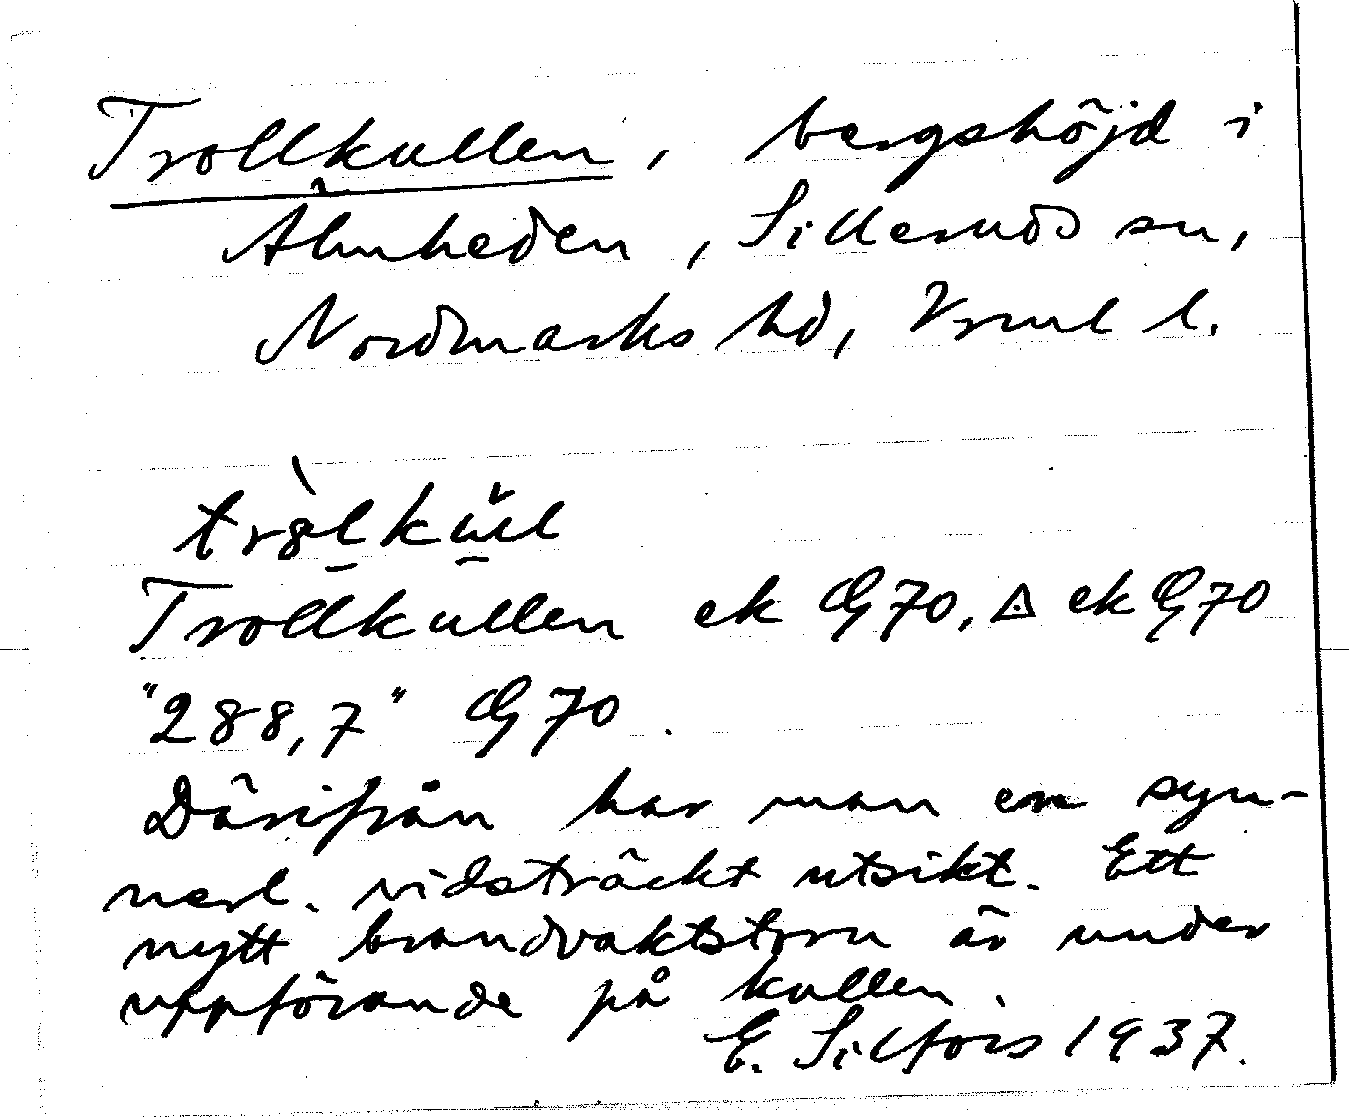 Trollkullen, bergshöjd i
Älmheden, Silleruds sn,
Nordmarks hd, Vrml l.
Trollkullen ek G70, △ ek G70
"288,7" G70.
Därifrån har man en syn-
nerl. vidsträckt utsikt. Ett
nytt brandvaktstorn är under
uppförande på kullen.
E. Silfors 1937.